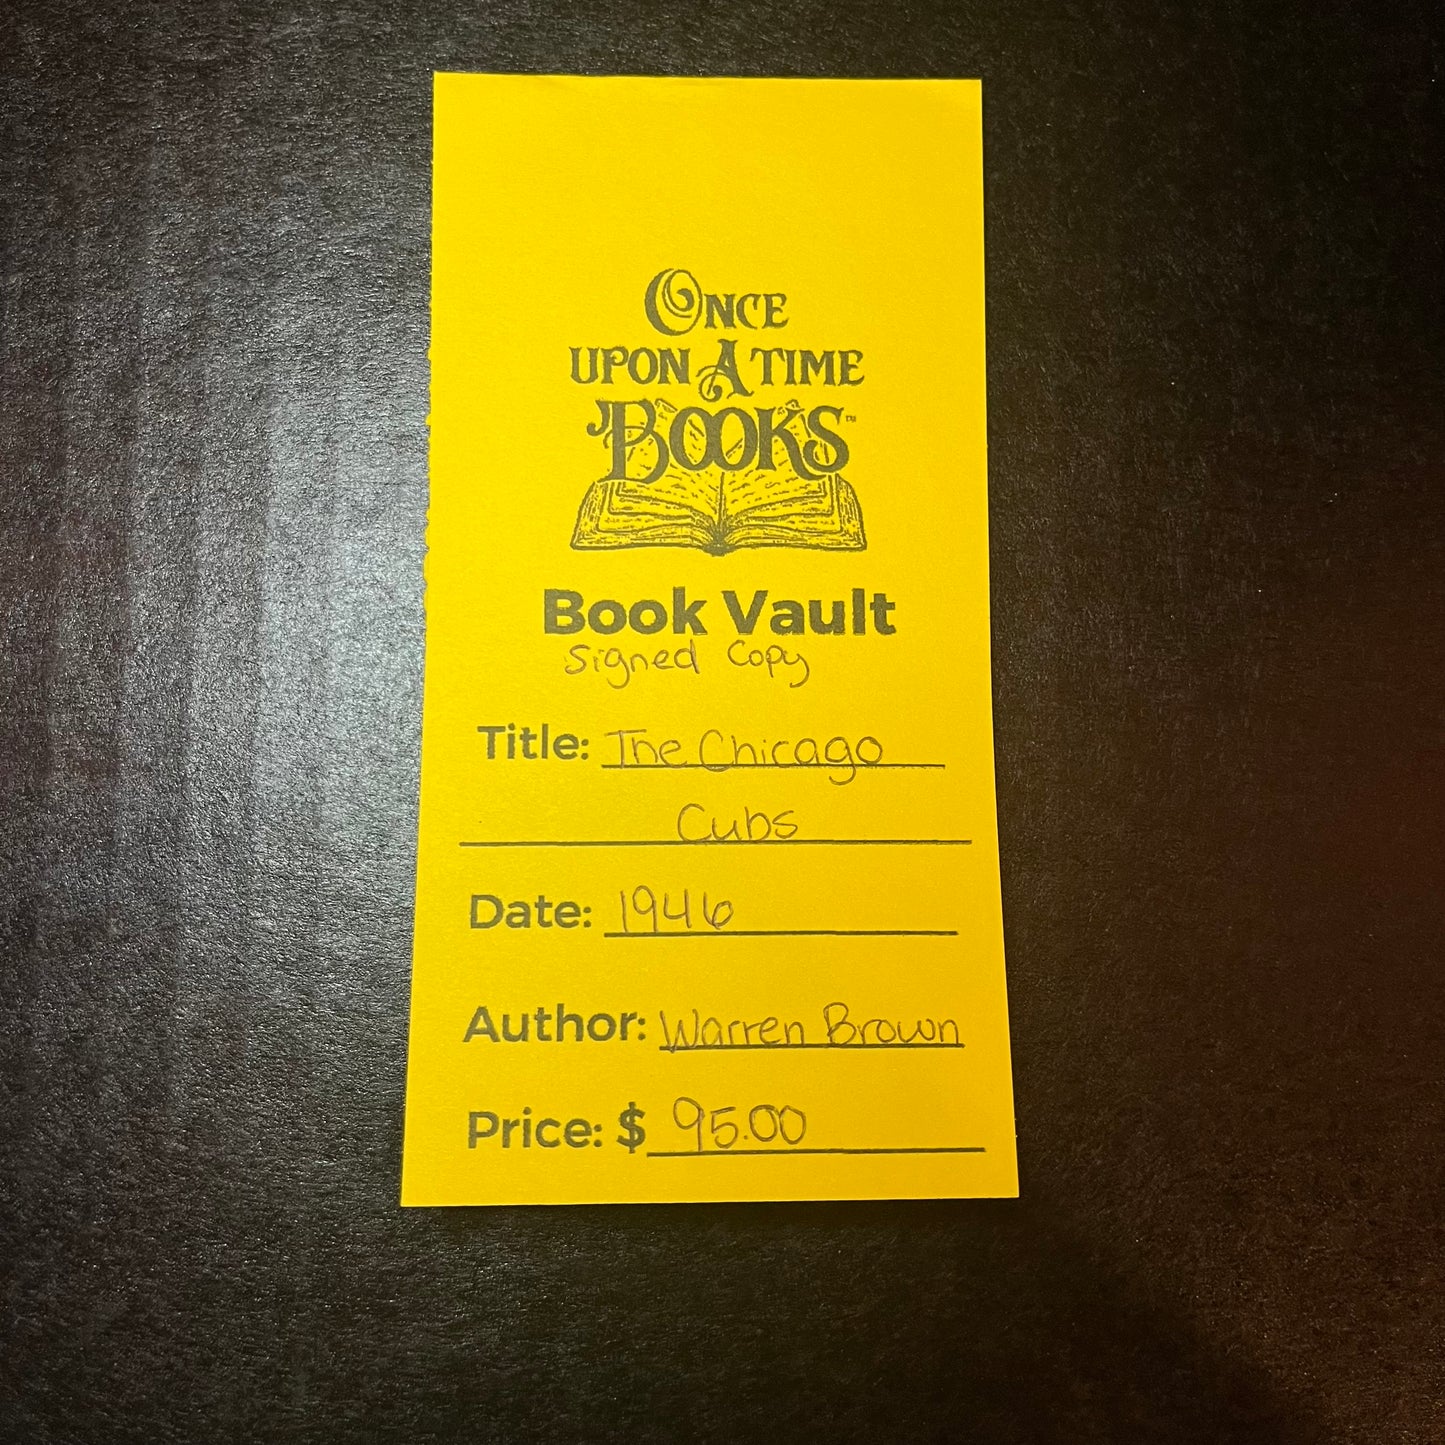 ONCE
UPON A TIME
BOOKS™
Book Vault
Signed Copy
Title: The Chicago
Cubs
Date: 1946
Author: Warren Brown
Price: $ 95.00